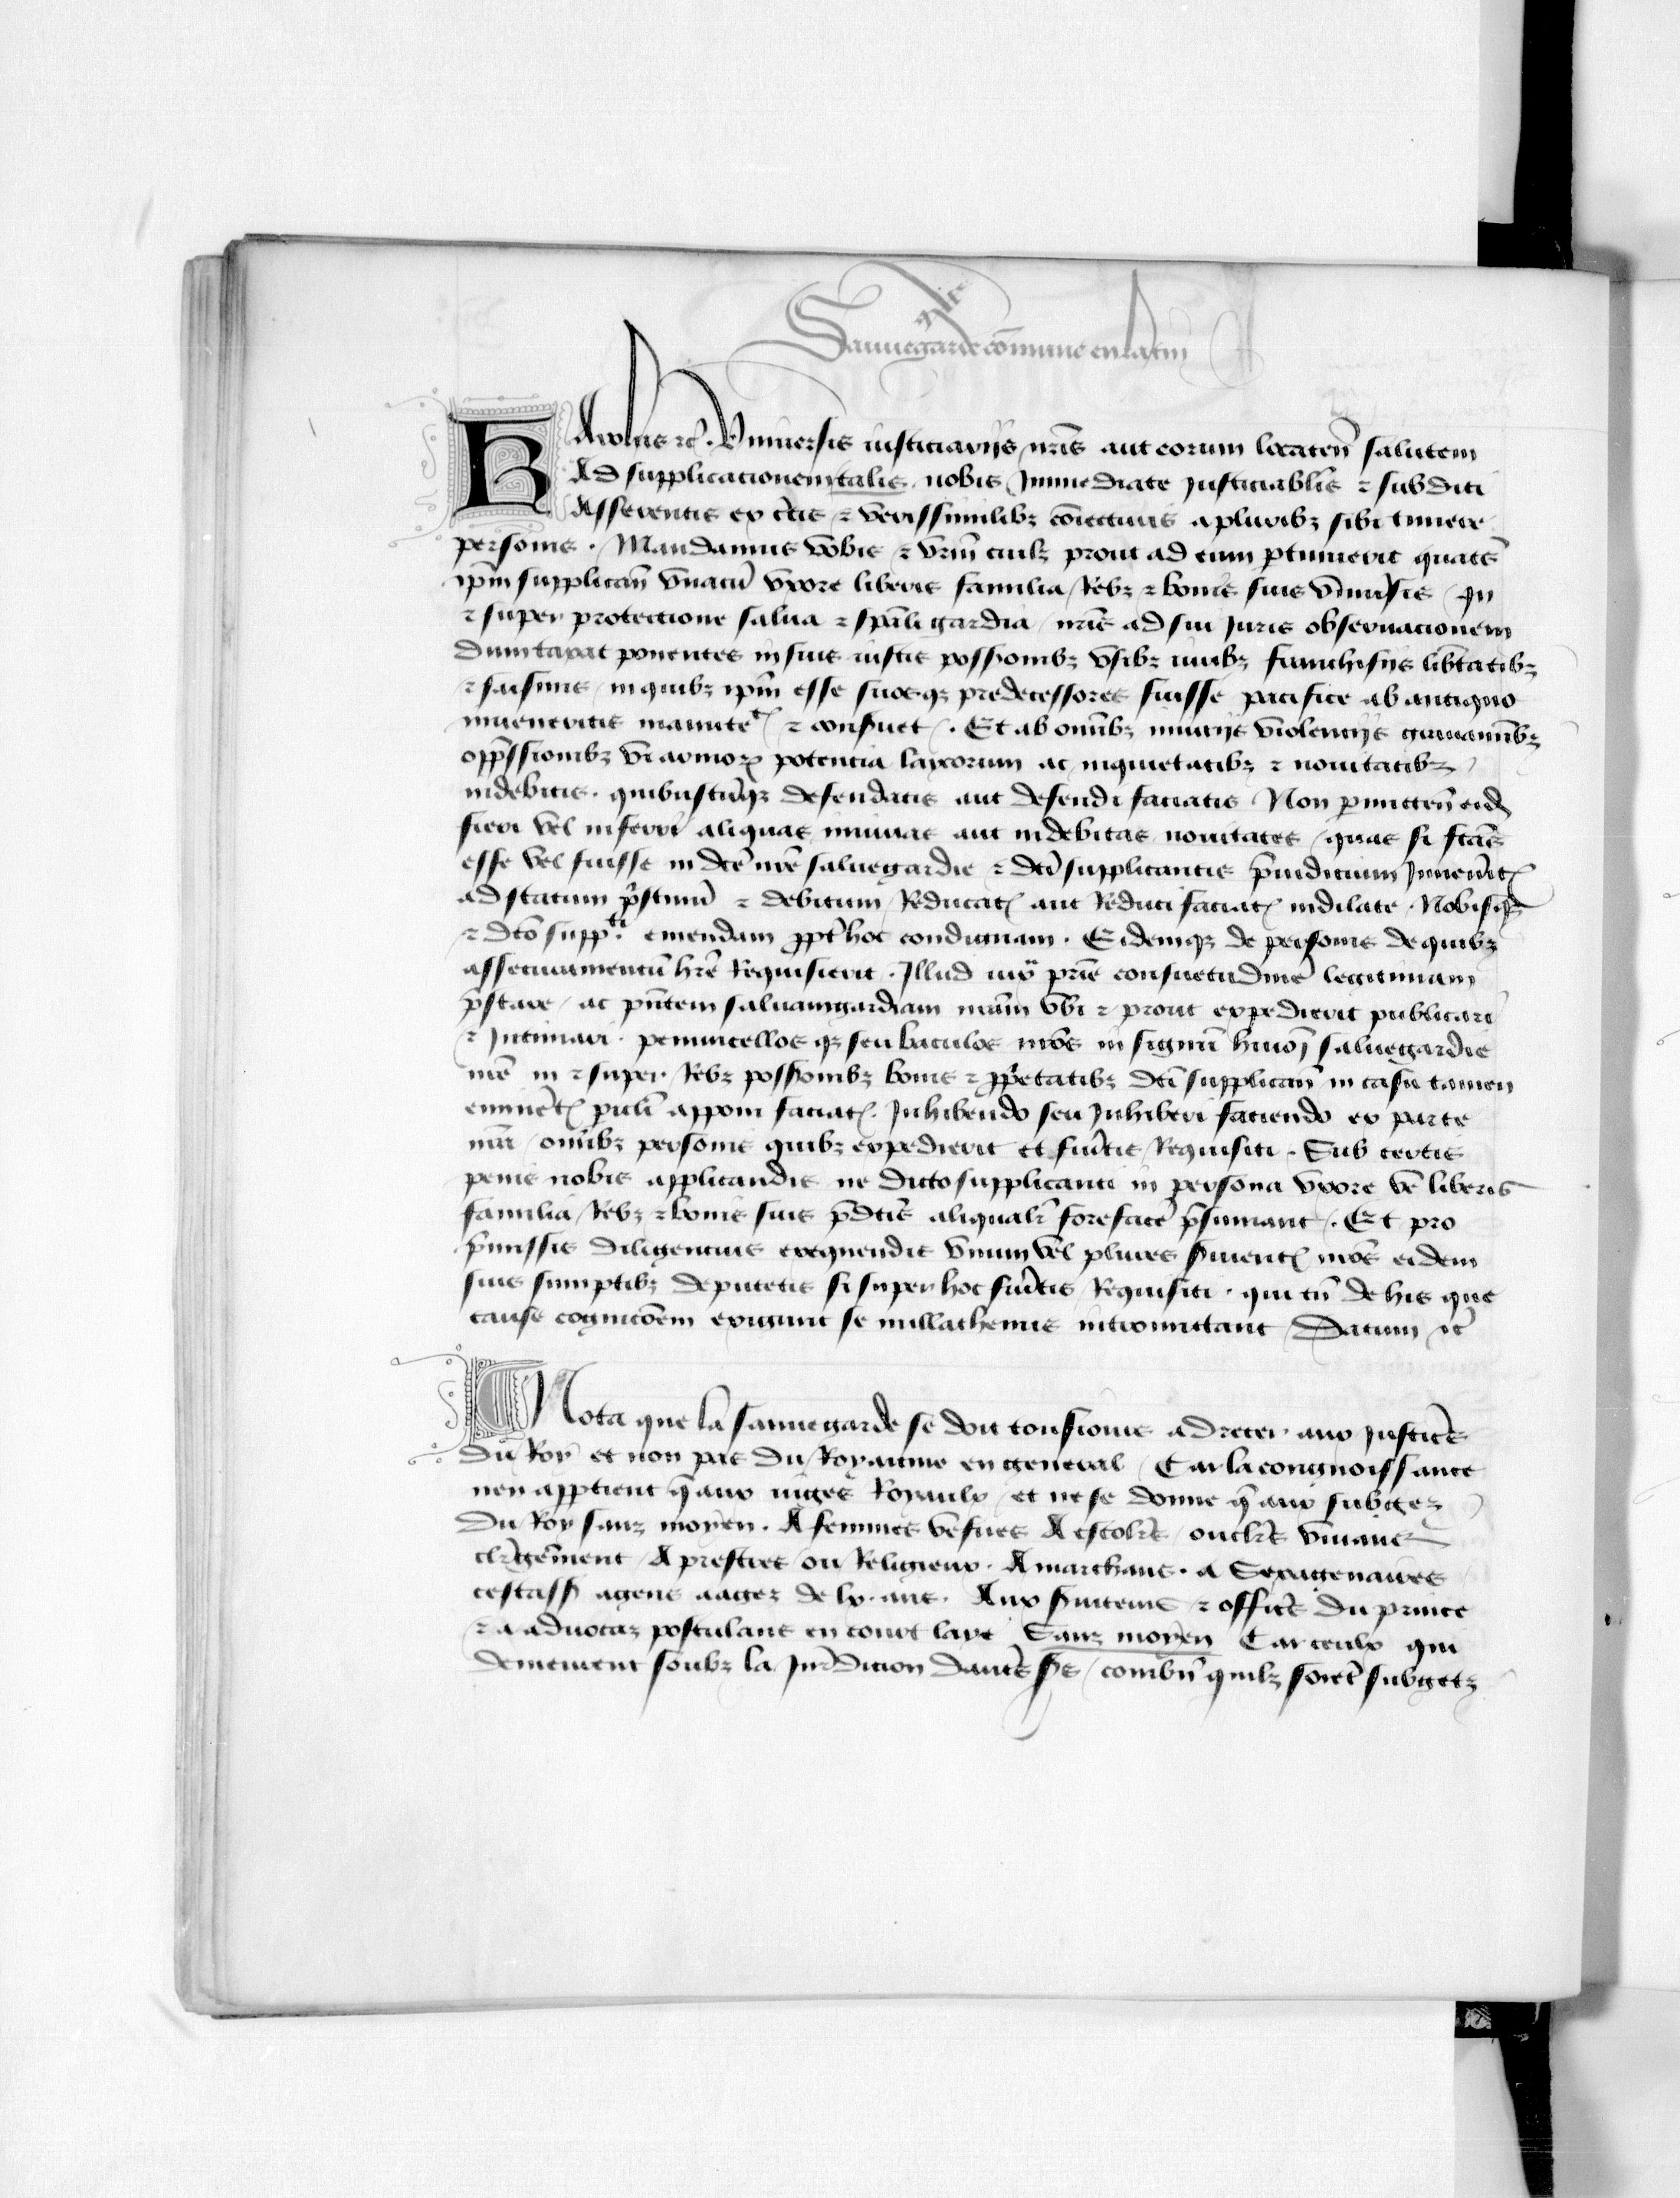 Sauuegarde cōmune en latin
KArolus etc̄. Vniuersis iusticiarijs nr̄is aut eorum locaten̄ salutem
Ad supplicacionem talis nobis Immediate Justiciabl̄is ⁊ subditi
Asserentis ex c̄tis ⁊ verissimilibꝫ cōiecturis a pluribꝫ sibi timere
personis . Mandamus vobis ⁊ vr̄m cuilꝫ prout ad eum ꝑtinuerit quatꝰ
ip̄m supplican̄ vnacū vxore liberis familia Rebꝫ ⁊ bonis suis vniuꝰsis In
⁊ super protectione salua ⁊ sp̄ali gardia nr̄is ad sui Juris obseruacionem
dumtaxat ponentes in suis iustis poss̄ionibꝫ vsibꝫ iuribꝫ franchisijs lib̄tatibꝫ
⁊ saisinis in quibꝫ ip̄m esse suosqꝫ predecessores fuisse pacifice ab antiquo
inueneritis manute&ⁿ ⁊ conseruet . Et ab om̄ibꝫ iniurijs violencijs grauaminibꝫ
opp̄ssionibꝫ vi armoꝝ potencia laycorum ac inquietatibꝫ ⁊ nouitatibꝫ
indebitis . quibuscūqꝫ defendatis aut defendi faciatis Non ꝑmitten̄ eidē
fieri vel inferri aliquas iniurias aut indebitas nouitates quas si fc̄as
esse vel fuisse in dc̄e nr̄e saluegardie ⁊ dc̄i supplicantis p̄iudicium Inuen̄itꝭ
ad statum p̄stinū ⁊ debitum Reducatꝭ aut Reduci faciatꝭ indilate . Nobisqꝫ
⁊ dc̄o suppᵗⁱ. emendam ꝓpt̄ hoc condignam . Eidemqꝫ de personis de quibꝫ
assecuramentū hr̄e Requisierit . Illud iux̄ pr̄ie consuetudinē legitimam
p̄stare ac pn̄tem saluamgardiam nr̄am vbi ⁊ prout expedierit publicari
⁊ Intimari . penuncellos qꝫ seu baculos nr̄os in signū hm̄oi saluegardie
nr̄e in ⁊ super Rebꝫ poss̄ionibꝫ bonis ⁊ ꝓp̄etatibꝫ dc̄i supplican̄ in casu tamen
eminētꝭ ꝑicli apponi faciatꝭ. Inhibendo seu Inhiberi faciendo ex parte
nr̄a om̄ibꝫ personis quibꝫ expedierit et fūitis Requisiti . Sub certis
penis nobis applicandis ne dicto supplicanti in persona vxore vē liberis
familia Rebꝫ ⁊ bonis suis p̄dc̄is aliqualr̄ forefacē p̄sumant . Et pro
p̄missis diligencius exequendis vnum vel plures seruientꝭ nr̄os eidem
suis sumptibꝫ deputetis si super hoc fūitis Requisiti . qui tn̄ de his que
cause cognicōem exigunt se nullathenus intromittant Datum etc̄
Nota que la sauuegarde se doit tousiours adrecer aux Justicēs
du Roy et non pas du Royaume en general Car la congnoissance
nen appᵗient q̄ aux iuges Royaulx et ne se donne q̄ aux subgez
du Roy sans moyen . A femmes vesues A escolr̄s ou clr̄s viuans
clr̄gemment A prestres ou Religieux . A marchans . a Sexagenaires
cestass̄ agens aagez de lx. ans . Aux seruiteurs ⁊ officr̄s du prince
⁊ a aduocaz postulans en court laye Sans moyen Car ceulx qui
demeurent soubz la Jur̄dicion dautr̄s sr̄s combn̄ quilz soiēt subgetz